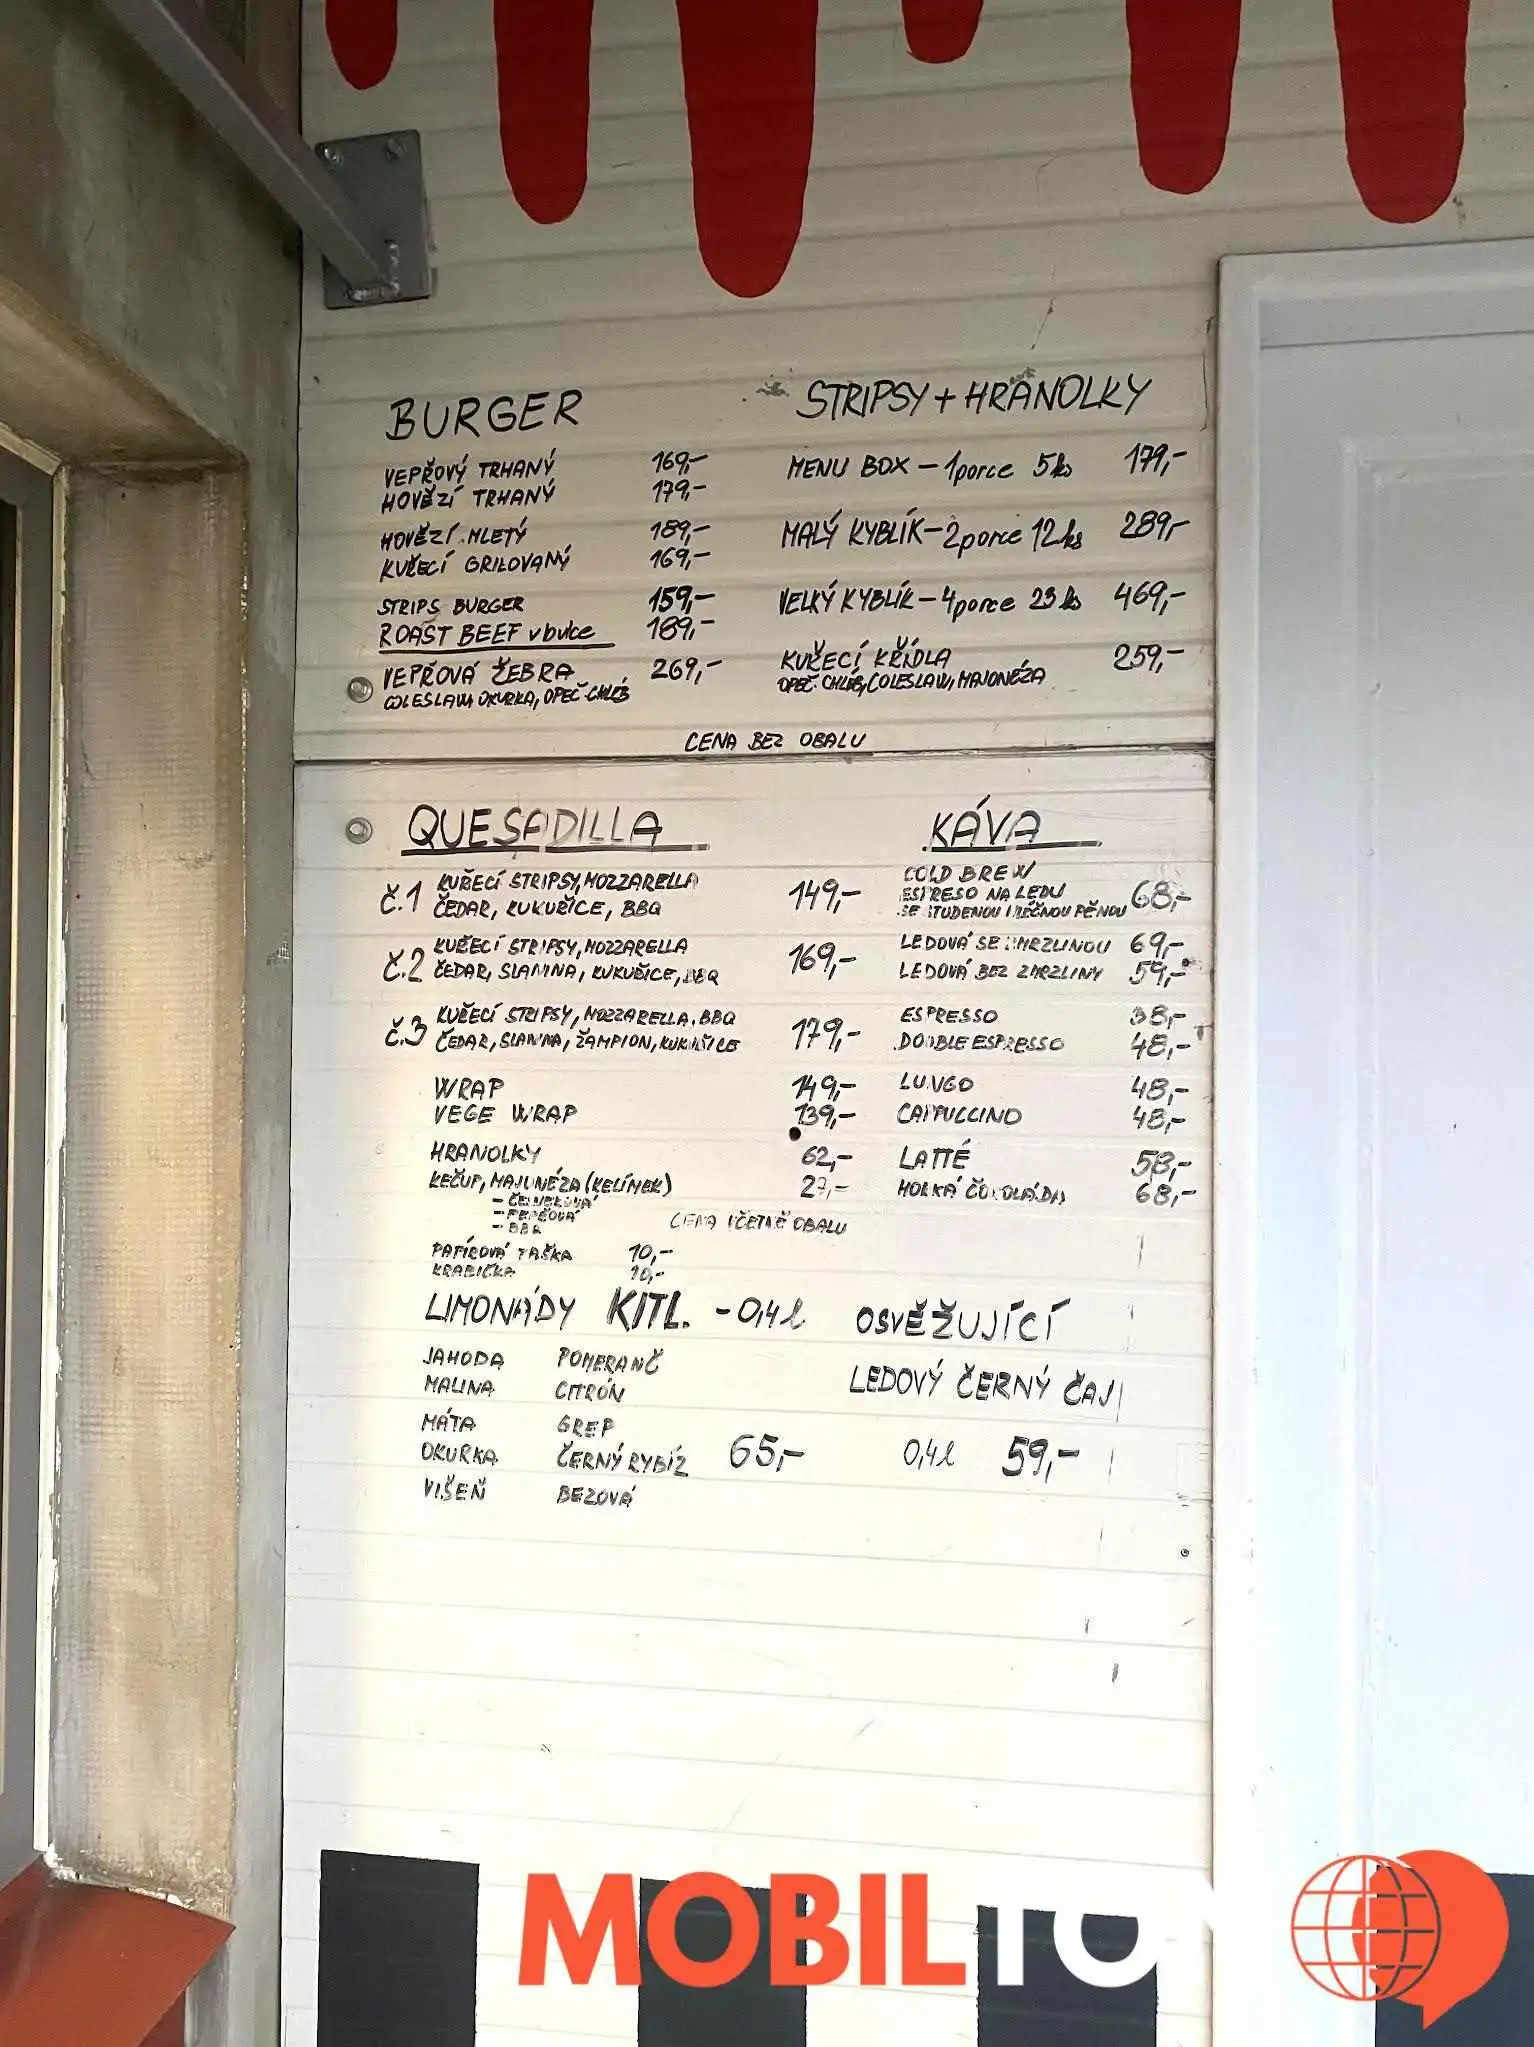 BURGER
VEPŘOVÝ TRHANÝ 169,-
HOVĚZÍ TRHANÝ 179,-
HOVĚZÍ MLETÝ 189,-
KUŘECÍ GRILOVANÝ 169,-
STRIPS BURGER 159,-
ROAST BEEF v bulce 189,-
VEPŘOVÁ ŽEBRA 269,-
COLESLAW, OKURKA, OPEČ. CHLÉB
STRIPSY + HRANOLKY
MENU BOX – 1 porce 5 ks 179,-
MALÝ KYBLÍK – 2 porce 12 ks 289,-
VELKÝ KYBLÍK – 4 porce 23 ks 469,-
KUŘECÍ KŘÍDLA 259,-
OPEČ. CHLÉB, COLESLAW, MAJONÉZA
CENA BEZ OBALU
QUESADILLA
Č.1 KUŘECÍ STRIPSY, MOZZARELLA
ČEDAR, KUKUŘICE, BBQ 149,-
Č.2 KUŘECÍ STRIPSY, MOZZARELLA
ČEDAR, SLANINA, KUKUŘICE, BBQ 169,-
Č.3 KUŘECÍ STRIPSY, MOZZARELLA, BBQ
ČEDAR, SLANINA, ŽAMPION, KUKUŘICE 179,-
WRAP 149,-
VEGE WRAP 139,-
HRANOLKY 62,-
KEČUP, MAJONÉZA (KELÍMEK) 27,-
- ČESNEKOVÁ
- PEPŘOVÁ
- BBQ
CENA VČETNĚ OBALU
PAPÍROVÁ TAŠKA 10,-
KRABIČKA 10,-
KÁVA
COLD BREW
ESPRESO NA LEDU
SE STUDENOU MLÉČNOU PĚNOU 68,-
LEDOVÁ SE ZMRZLINOU 69,-
LEDOVÁ BEZ ZMRZLINY 59,-
ESPRESSO 38,-
DOUBLE ESPRESSO 48,-
LUNGO 48,-
CAPPUCCINO 48,-
LATTÉ 58,-
HORKÁ ČOKOLÁDA 68,-
LIMONÁDY KITL. - 0,4 l
JAHODA POMERANČ
MALINA CITRÓN
MÁTA GREP
OKURKA ČERNÝ RYBÍZ 65,-
VIŠEŇ BEZOVÁ
OSVĚŽUJÍCÍ
LEDOVÝ ČERNÝ ČAJ
0,4 l 59,-